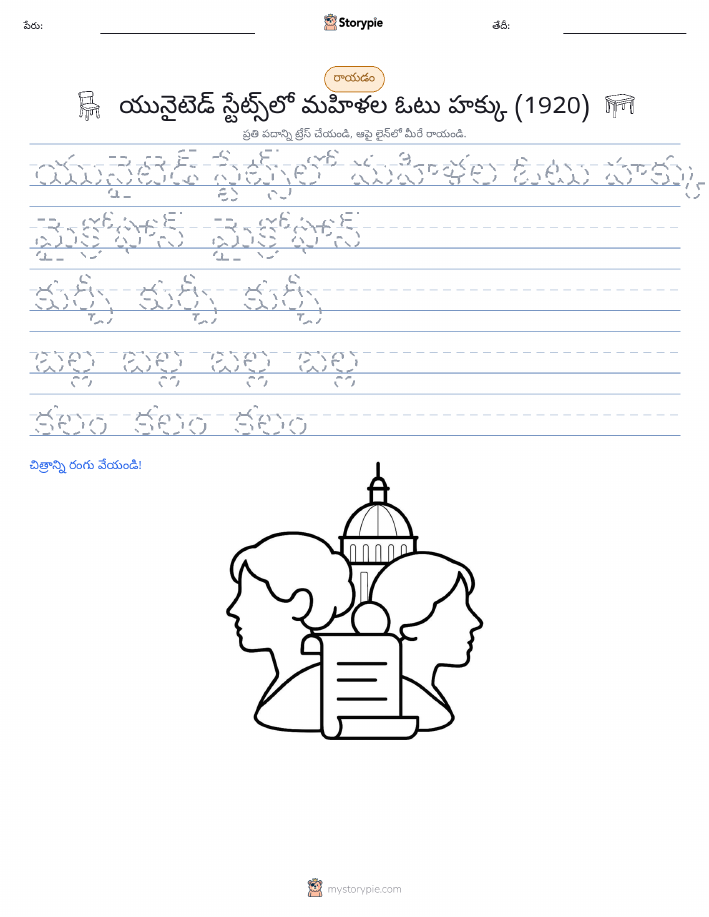 పేరు:
Storypie
తేదీ:
రాయడం
యునైటెడ్ స్టేట్స్‌లో మహిళల ఓటు హక్కు (1920)
ప్రతి పదాన్ని ట్రేస్ చేయండి, ఆపై లైన్‌లో మీరే రాయండి.
యునైటెడ్ స్టేట్స్‌లో మహిళల ఓటు హక్కు
మైక్రోఫోన్ మైక్రోఫోన్
కుర్చీ కుర్చీ కుర్చీ
బల్ల బల్ల బల్ల బల్ల
కలం కలం కలం
చిత్రాన్ని రంగు వేయండి!
mystorypie.com